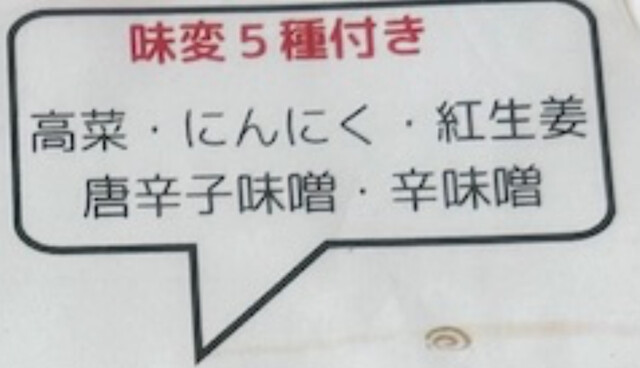 味変5種付き
高菜・にんにく・紅生姜
唐辛子味噌・辛味噌